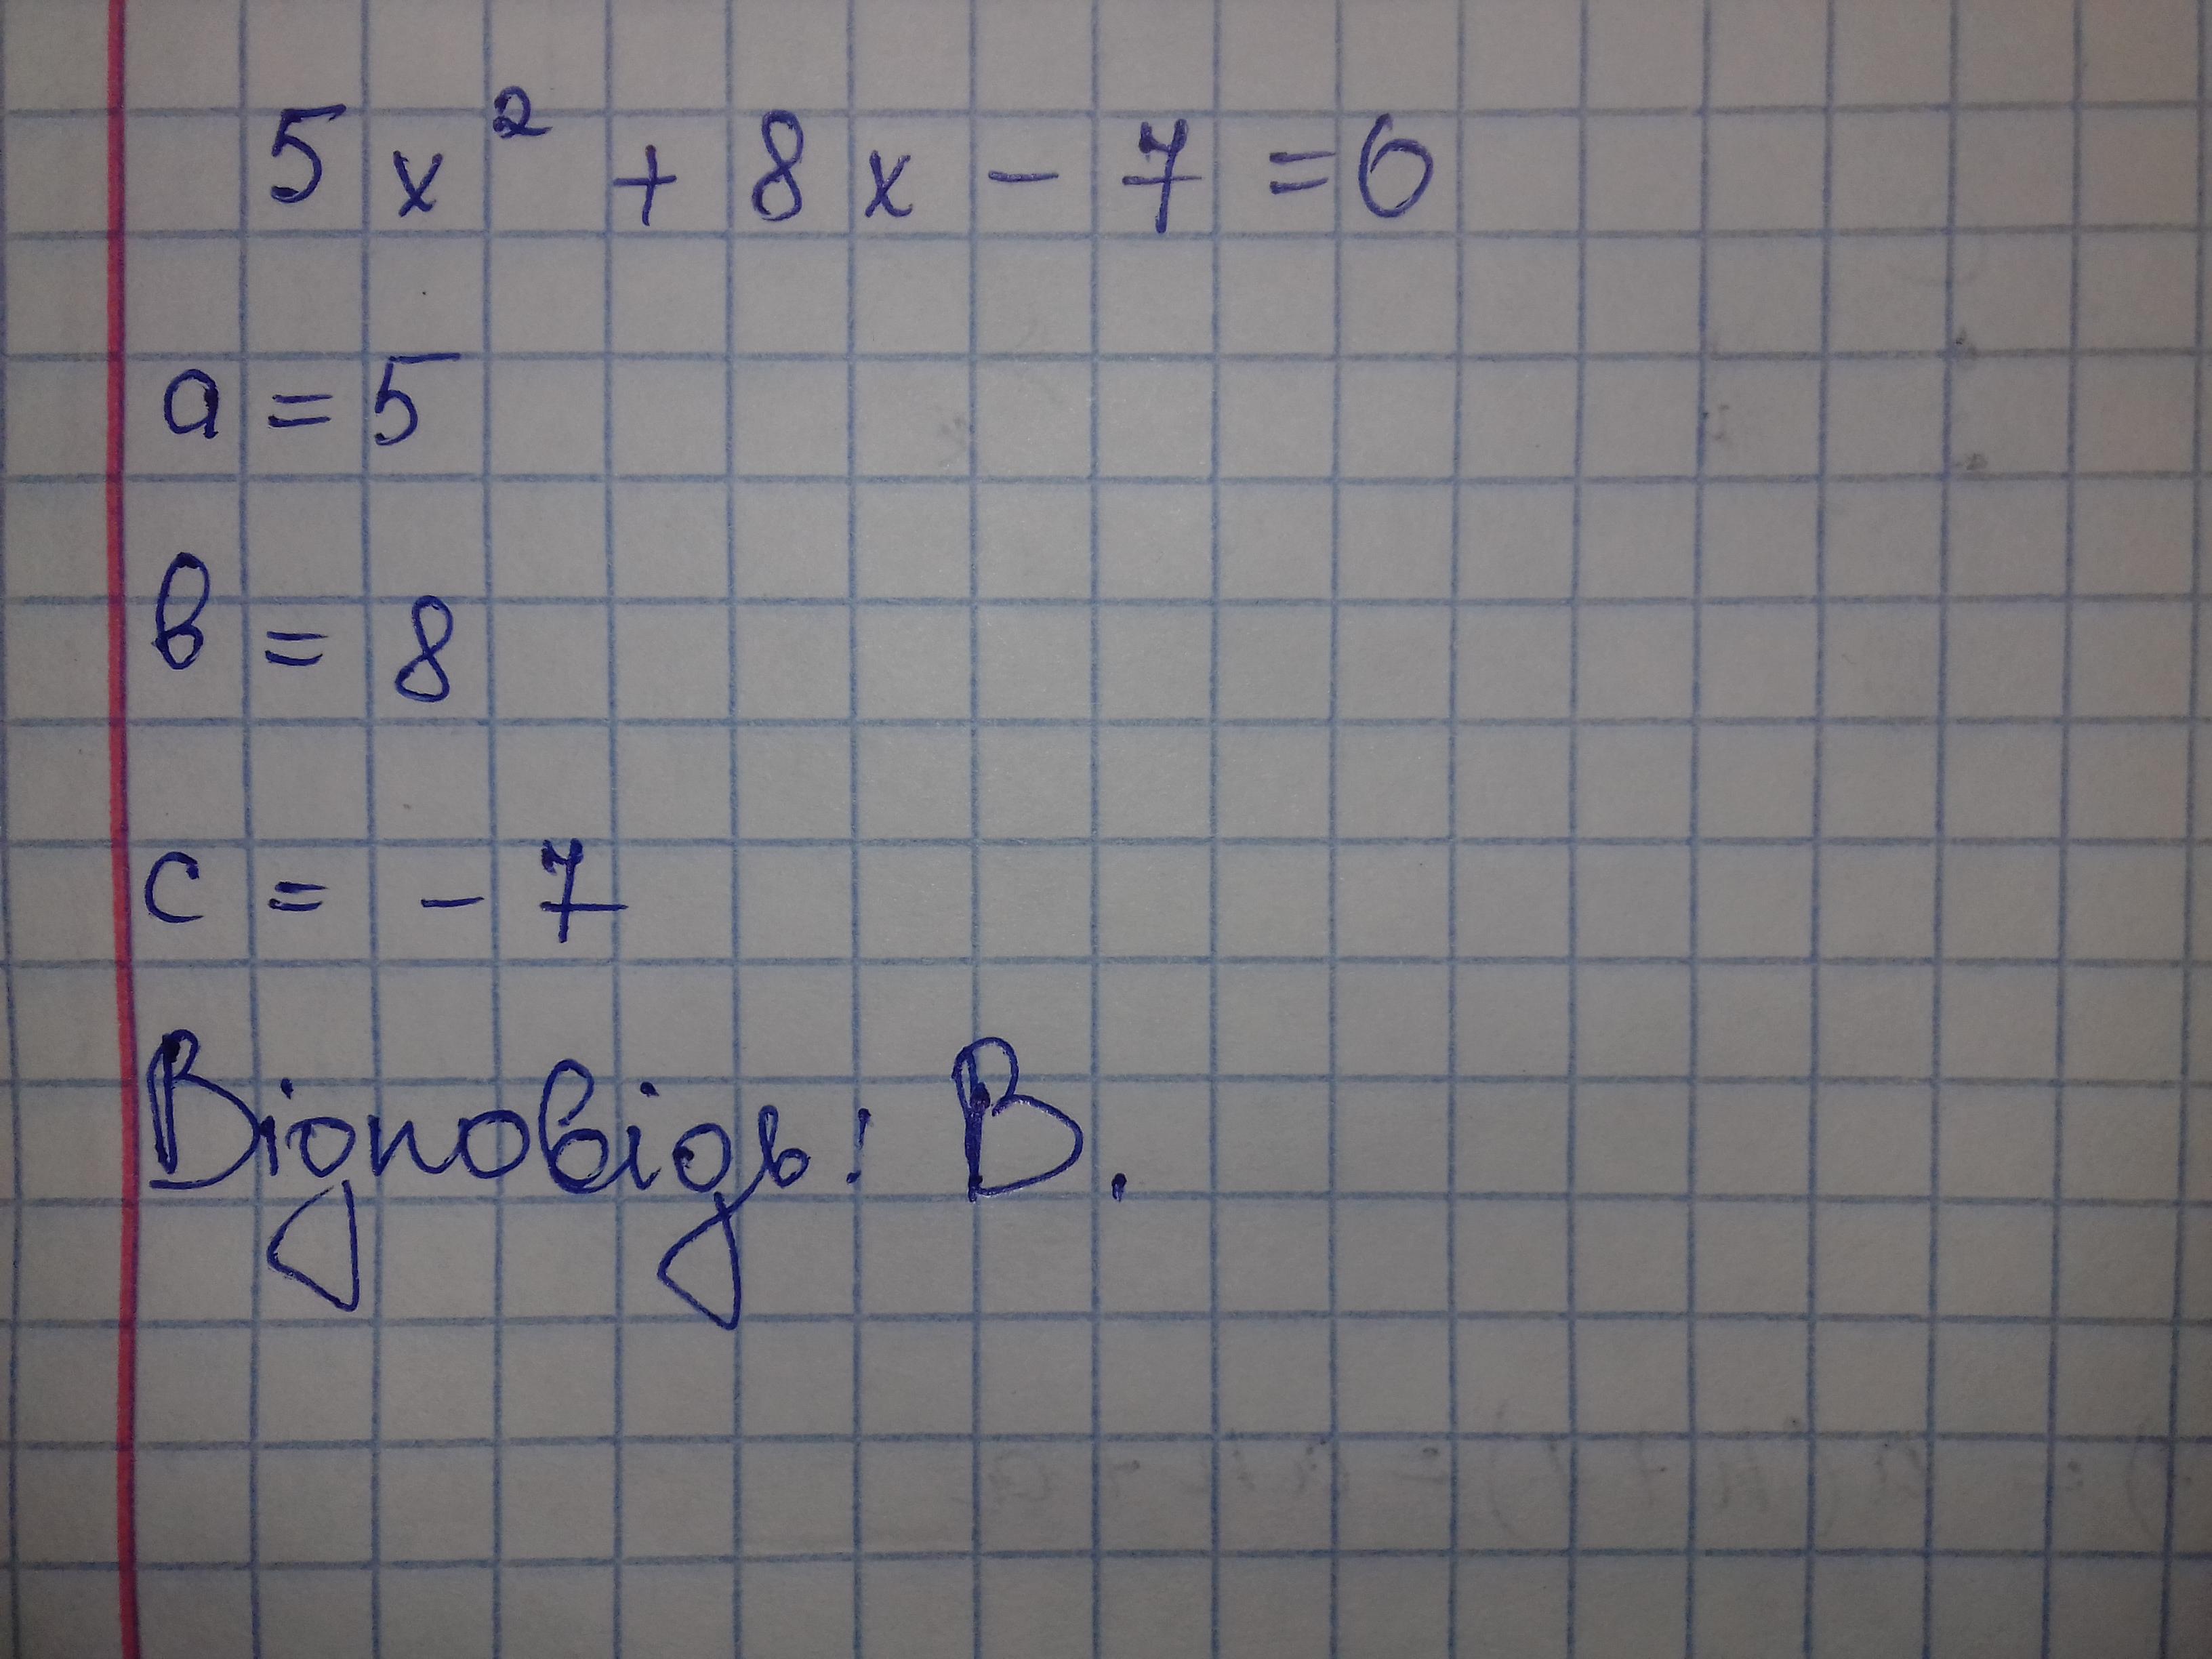 5x² + 8x - 7 = 0
a = 5
b = 8
c = - 7
Відповідь: В.